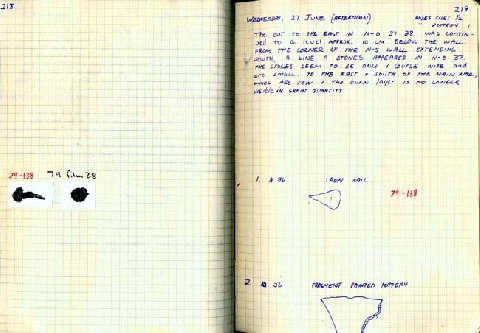 218
79-138 79 film 28
219
WEDNESDAY, 27 JUNE (AFTERNOON) BONES 1/2
POTTERY 1
THE CUT TO THE EAST IN N-O 27 28 WAS
TO A LEVEL APPROX. 10 CM BELOW THE WALL
FROM THE CORNER OF THE N-S WALL EXTENDING
SOUTH, A LINE OF STONES APPEARED IN N-O 27.
THE STONES SEEM TO BE ONLY 1 COURSE WIDE AND
ARE SMALL. TO THE EAST + SOUTH OF THE MAIN AREA,
ARE FEW + THE IS NO LONGER
VISIBLE IN GREAT QUANTITY
1. 36 IRON NAIL 79-138
2. 36 FRAGMENT PAINTED POTTERY